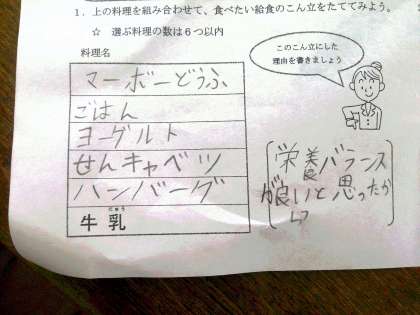 1. 上の料理を組み合わせて、食べたい給食のこん立をたててみよう。
☆ 選ぶ料理の数は6つ以内
料理名
マーボーどうふ
ごはん
ヨーグルト
せんキャベツ
ハンバーグ
にゅう
牛乳
このこん立にした
理由を書きましょう
栄養バランス
が良いと思ったか
ら